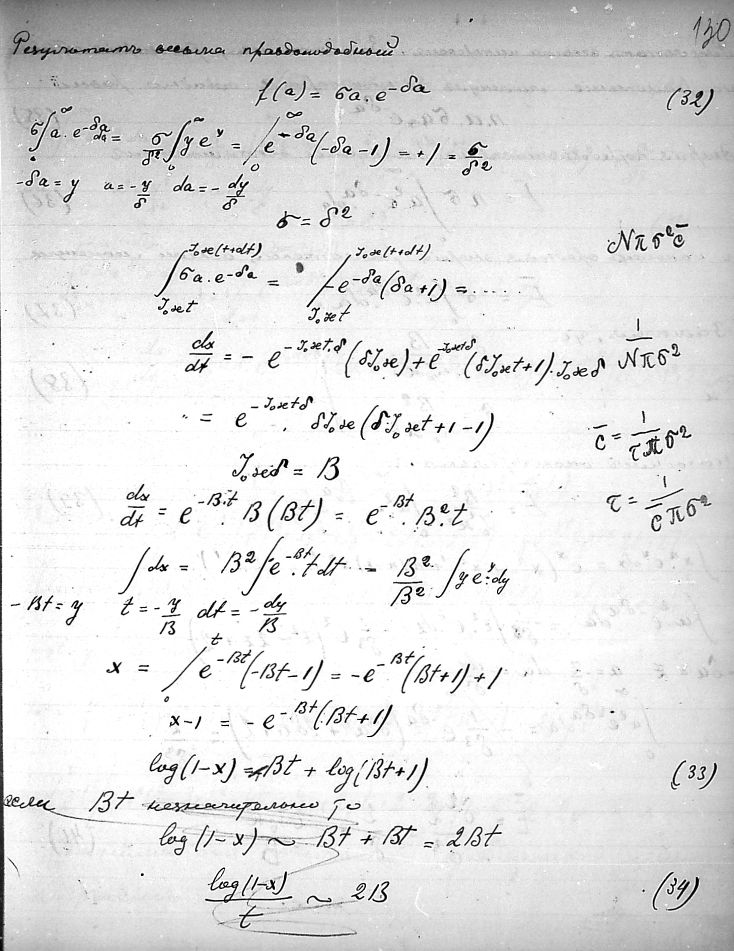 130
Результатъ весьма правдоподобный.
f(a) = σa.e^{-δa} (32)
σ∫_0^∞ a.e^{-δa} da = σ/δ² ∫_0^∞ y e^y = /_0^∞ e^{-δa}(-δa-1) = +1 = σ/δ²
-δa = y a = -y/δ da = -dy/δ
σ = δ²
Nπσ²c̄
∫_{J₀æt}^{J₀æ(t+dt)} σa.e^{-δa} = /_{J₀æt}^{J₀æ(t+dt)} -e^{-δa}(δa+1) = ......
dx/dt = - e^{-J₀æt.δ}(δJ₀æ) + e^{-J₀ætδ}(δJ₀æt+1).J₀æδ
1/Nπσ²
" = e^{-J₀ætδ}. δJ₀æ(δ.J₀æt+1-1)
c̄ = 1/τπσ²
J₀æδ = B
dx/dt = e^{-B.t}. B(Bt) = e^{-Bt}. B².t
τ = 1/c̄πσ²
∫dx = B²∫e^{-Bt}.tdt - B²/B² ∫ye^y.dy
-Bt = y t = -y/B dt = -dy/B
x = /_0^t e^{-Bt}(-Bt-1) = -e^{-Bt}(Bt+1)+1
x-1 = -e^{-Bt}(Bt+1)
log(1-x) = -Bt + log(Bt+1) (33)
если Bt незначительно то
log(1-x) ~ Bt + Bt = 2Bt
log(1-x)/t ~ 2B (34)